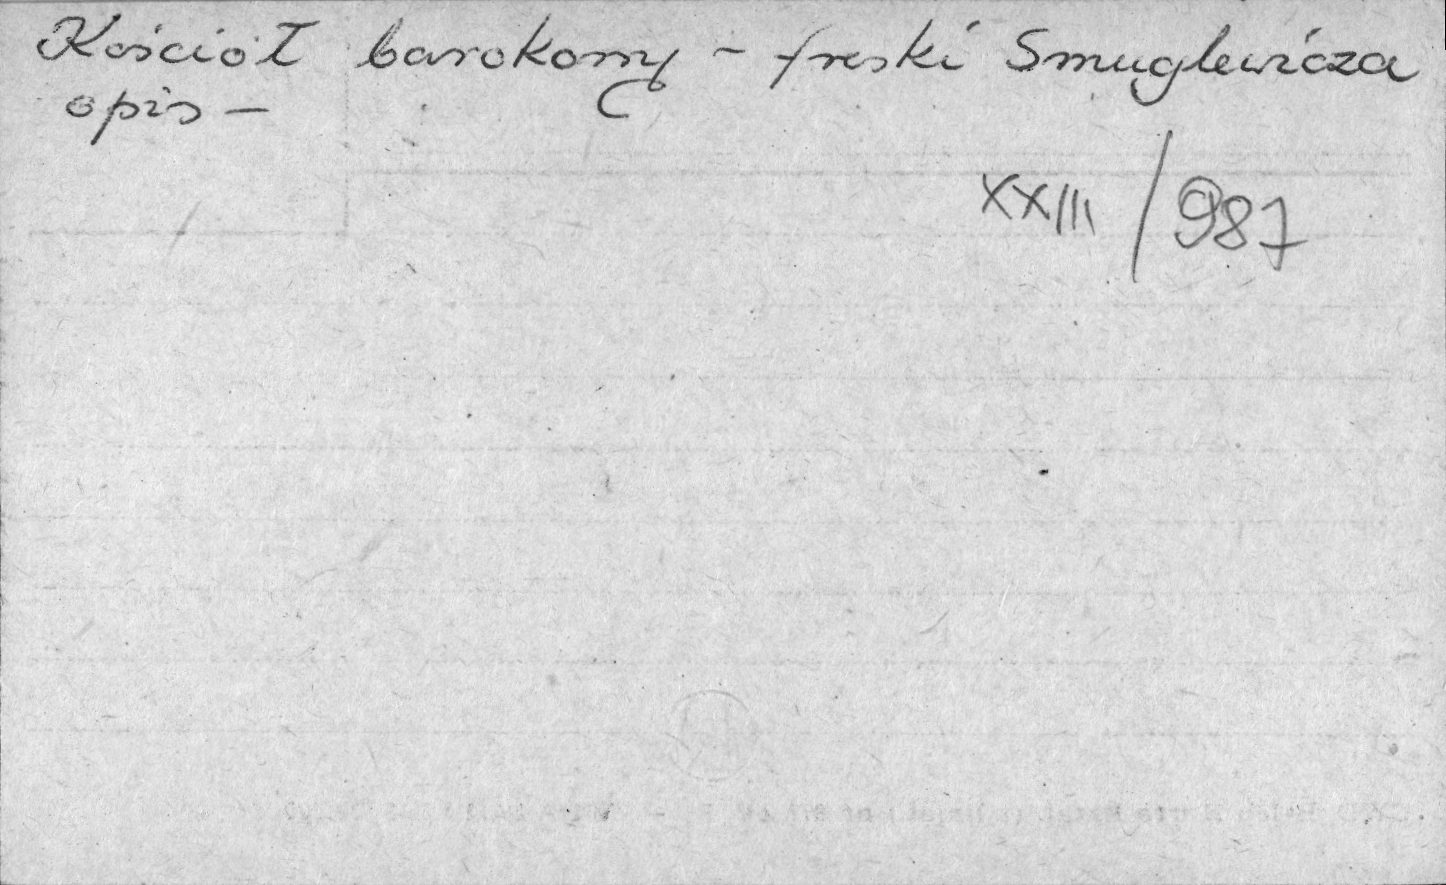 Kościół barokowy - freski Smuglewicza
opis -
XXIII/987